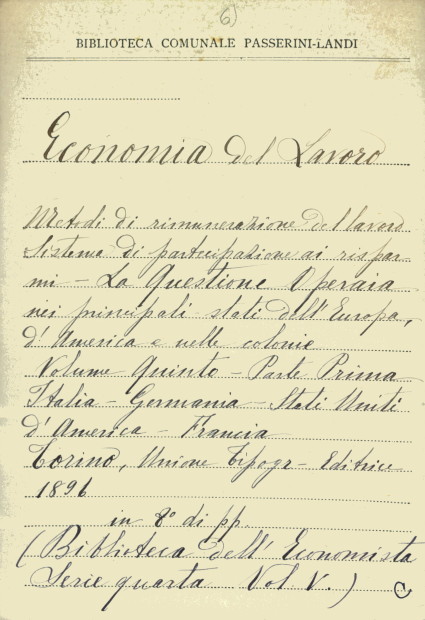 6)
BIBLIOTECA COMUNALE PASSERINI-LANDI
Economia del Lavoro
Metodi di rimunerazione del lavoro
Sistema di partecipazione ai rispar
mi - La Questione Operaia
nei principali stati dell'Europa,
d'America e nelle colonie
Volume Quinto - Parte Prima
Italia - Germania - Stati Uniti
d'America - Francia
Torino, Unione Tipogr - Editrice
1896
in 8° di pp.
(Biblioteca dell'Economista
Serie quarta Vol V.) C